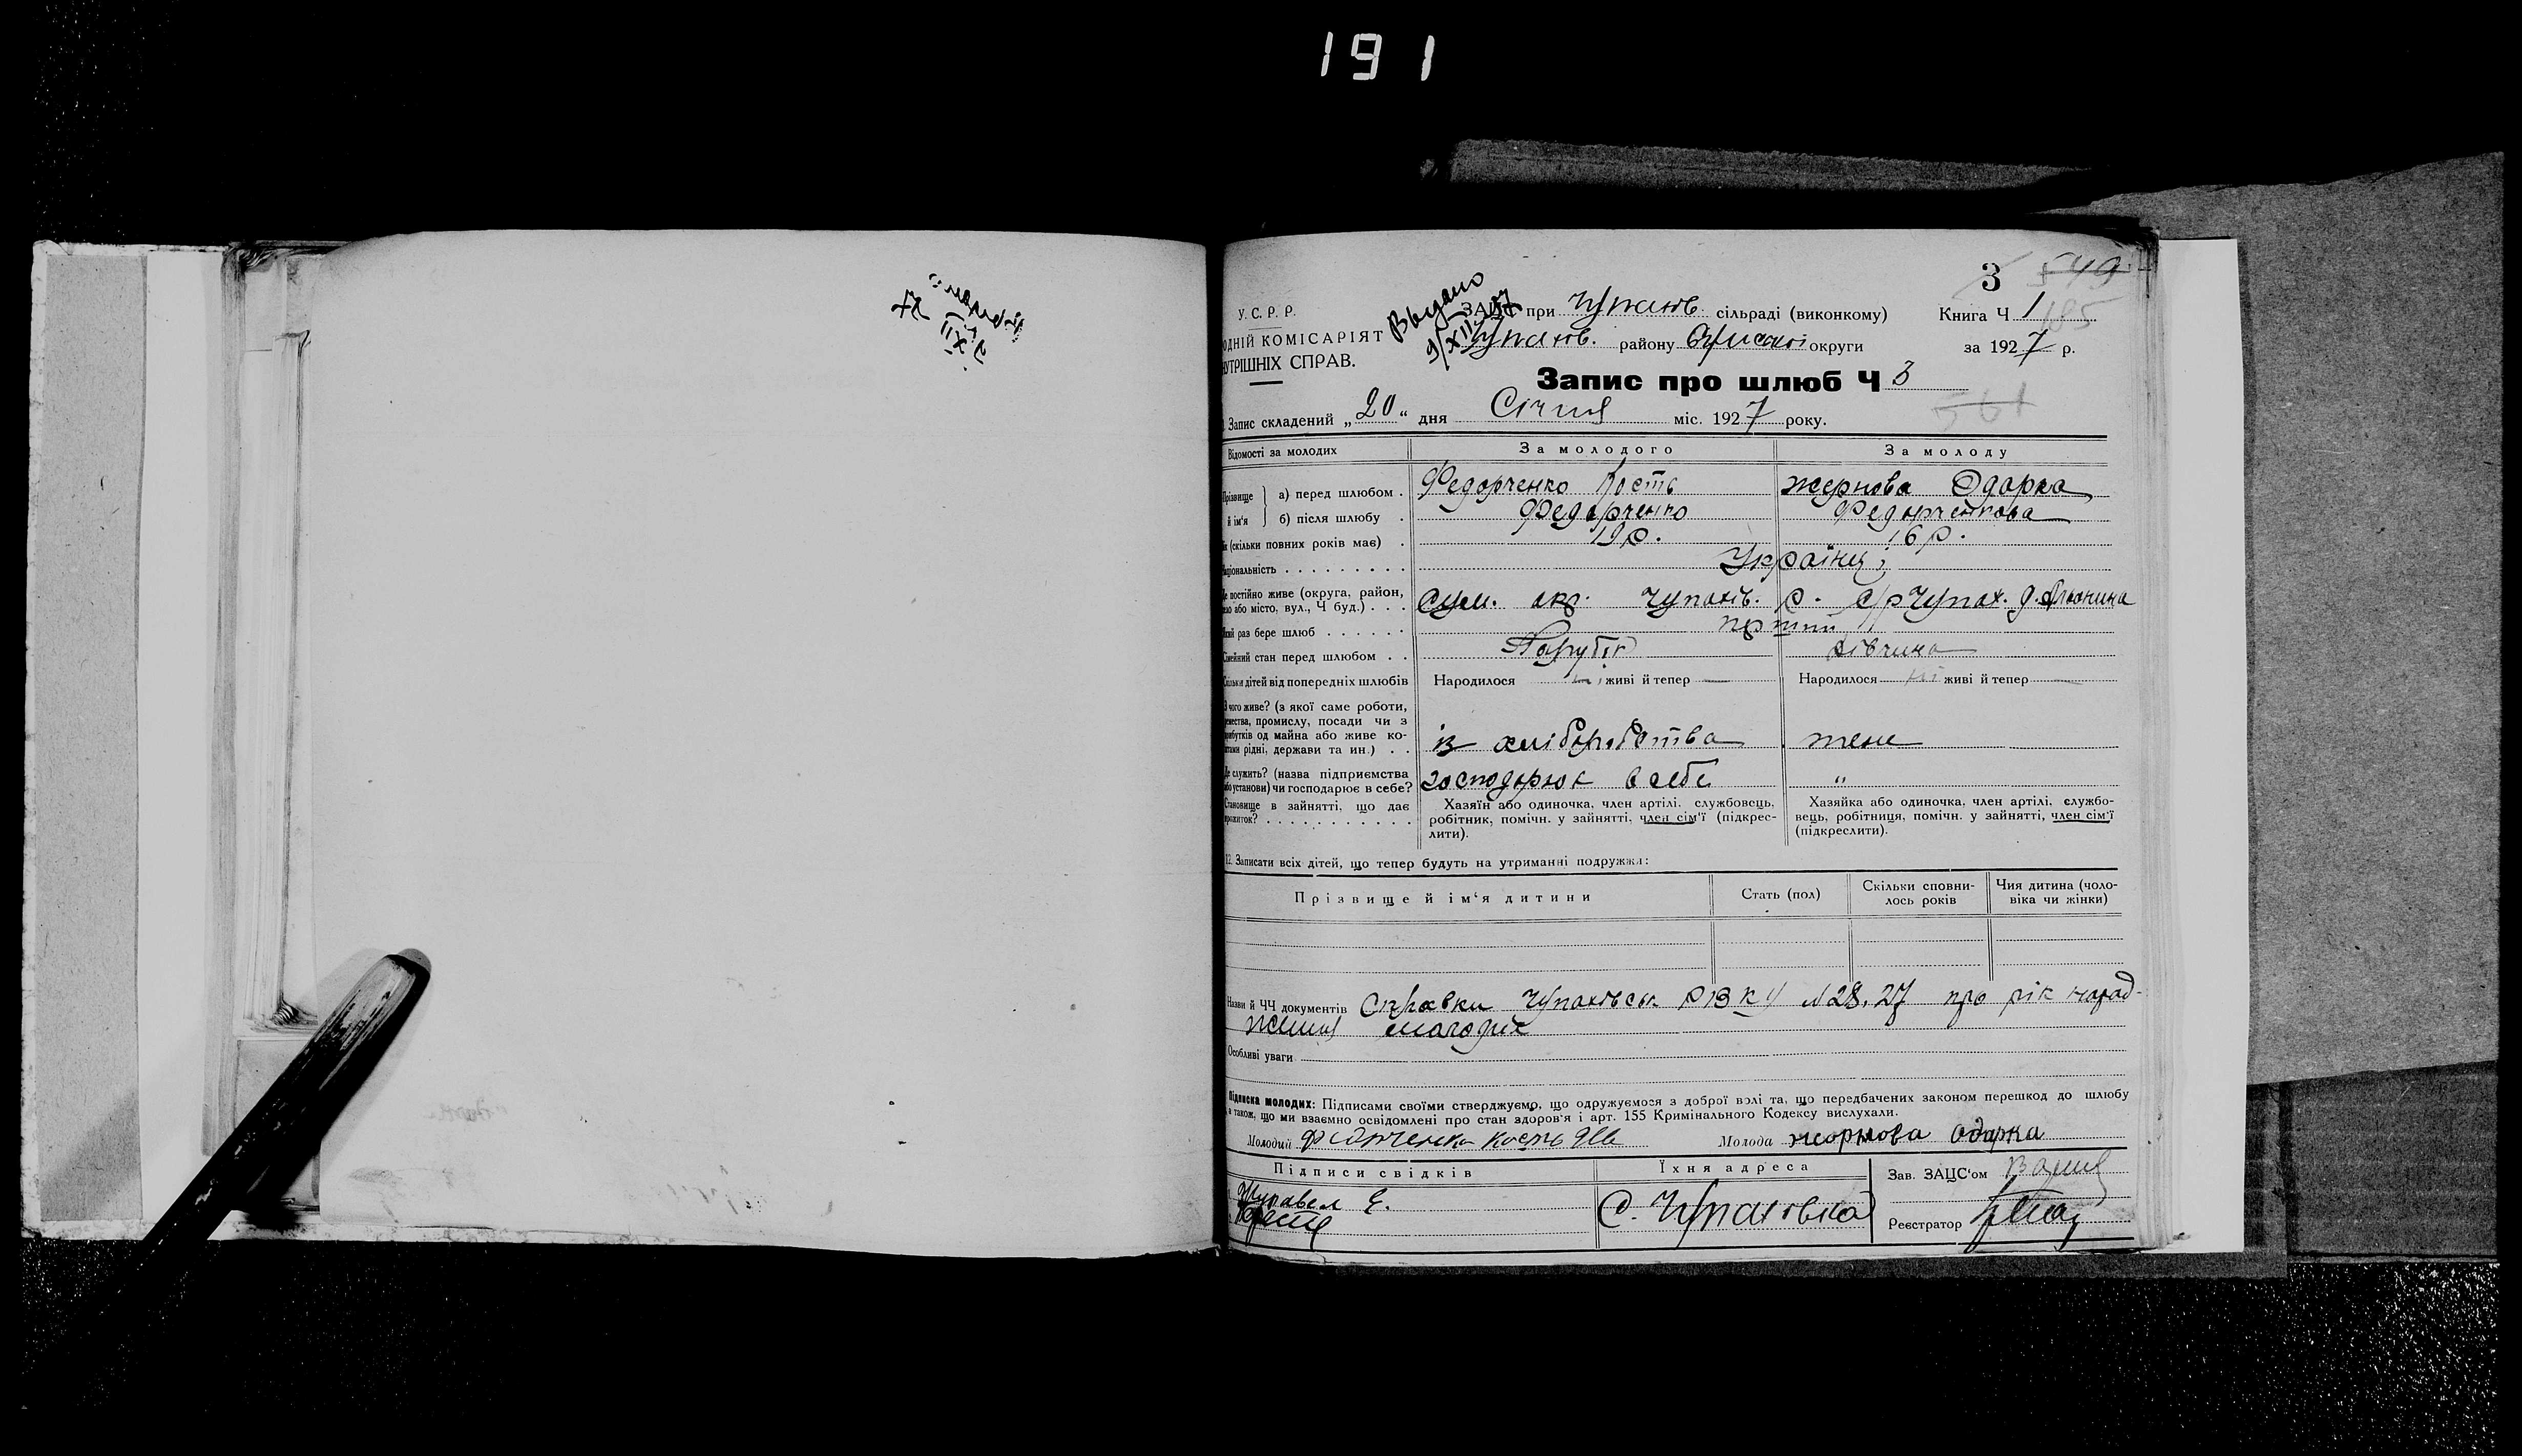 191
3 549
У. С. Р. Р.
Выдано
9/XII-37
ЗАЦС при Чупахів. сільраді (виконкому)
Книга Ч 1
185
ОДНІЙ КОМІСАРІЯТ
Чупахів. району Сумської округи
за 1927 р.
НУТРІШНІХ СПРАВ.
Запис про шлюб Ч 3
561
Запис складений „20" дня Січня міс. 1927 року.
Відомості за молодих
За молодого
За молоду
Прізвище й ім'я
а) перед шлюбом .
Федорченко Кость
Жернова Одарка
б) після шлюбу .
Федорченко
Федорченкова
Вік (скільки повних років має) .
19 р.
16 р.
Національність . . . . . . . . .
Українці
Де постійно живе (округа, район, село або місто, вул., Ч буд.) . . .
Сум. окр. Чупахів. р. с/р Чупах.
Який раз бере шлюб . . . . . .
перший
Сімейний стан перед шлюбом . .
Парубок
дівчина
Скільки дітей від попередніх шлюбів
Народилося ні живі й тепер —
Народилося ні живі й тепер —
З чого живе? (з якої саме роботи,
ремества, промислу, посади чи з
прибутків од майна або живе ко-
штами рідні, держави та ин.) . .
із хліборобства
теж
Де служить? (назва підприємства
або установи) чи господарює в себе?
господарює в себе
"
Становище в зайнятті, що дає
прожиток? . . . . . . . . . . .
Хазяїн або одиночка, член артілі, службовець,
робітник, помічн. у зайнятті, член сім'ї (підкрес-
лити).
Хазяйка або одиночка, член артілі, службо-
вець, робітниця, помічн. у зайнятті, член сім'ї
(підкреслити).
12. Записати всіх дітей, що тепер будуть на утриманні подружжя:
Прізвище й ім'я дитини
Стать (пол)
Скільки сповни-
лось років
Чия дитина (чоло-
віка чи жінки)
Назви й ЧЧ документів Справки Чупахівськ РВК У №28, 27 про рік народ-
ження молодих
Особливі уваги
Підписка молодих: Підписами своїми стверджуємо, що одружуємося з доброї волі та, що передбачених законом перешкод до шлюбу
а також, що ми взаємно освідомлені про стан здоров'я і арт. 155 Кримінального Кодексу вислухали.
Молодий Федорченко Кость
Молода Жорнова Одарка
Підписи свідків
Їхня адреса
Зав. ЗАЦС'ом
Журавел Е.
С. Чупахівка
Реєстратор